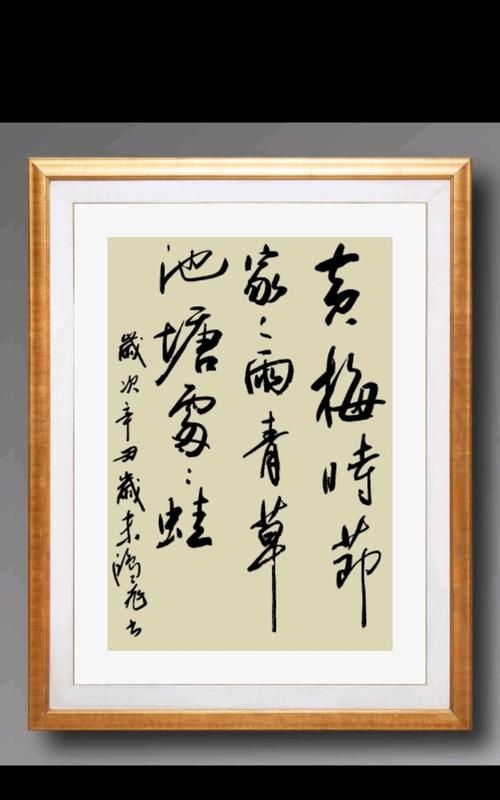 黄梅時節
家〻雨青草
池塘處〻蛙
歲次辛丑歲末
書